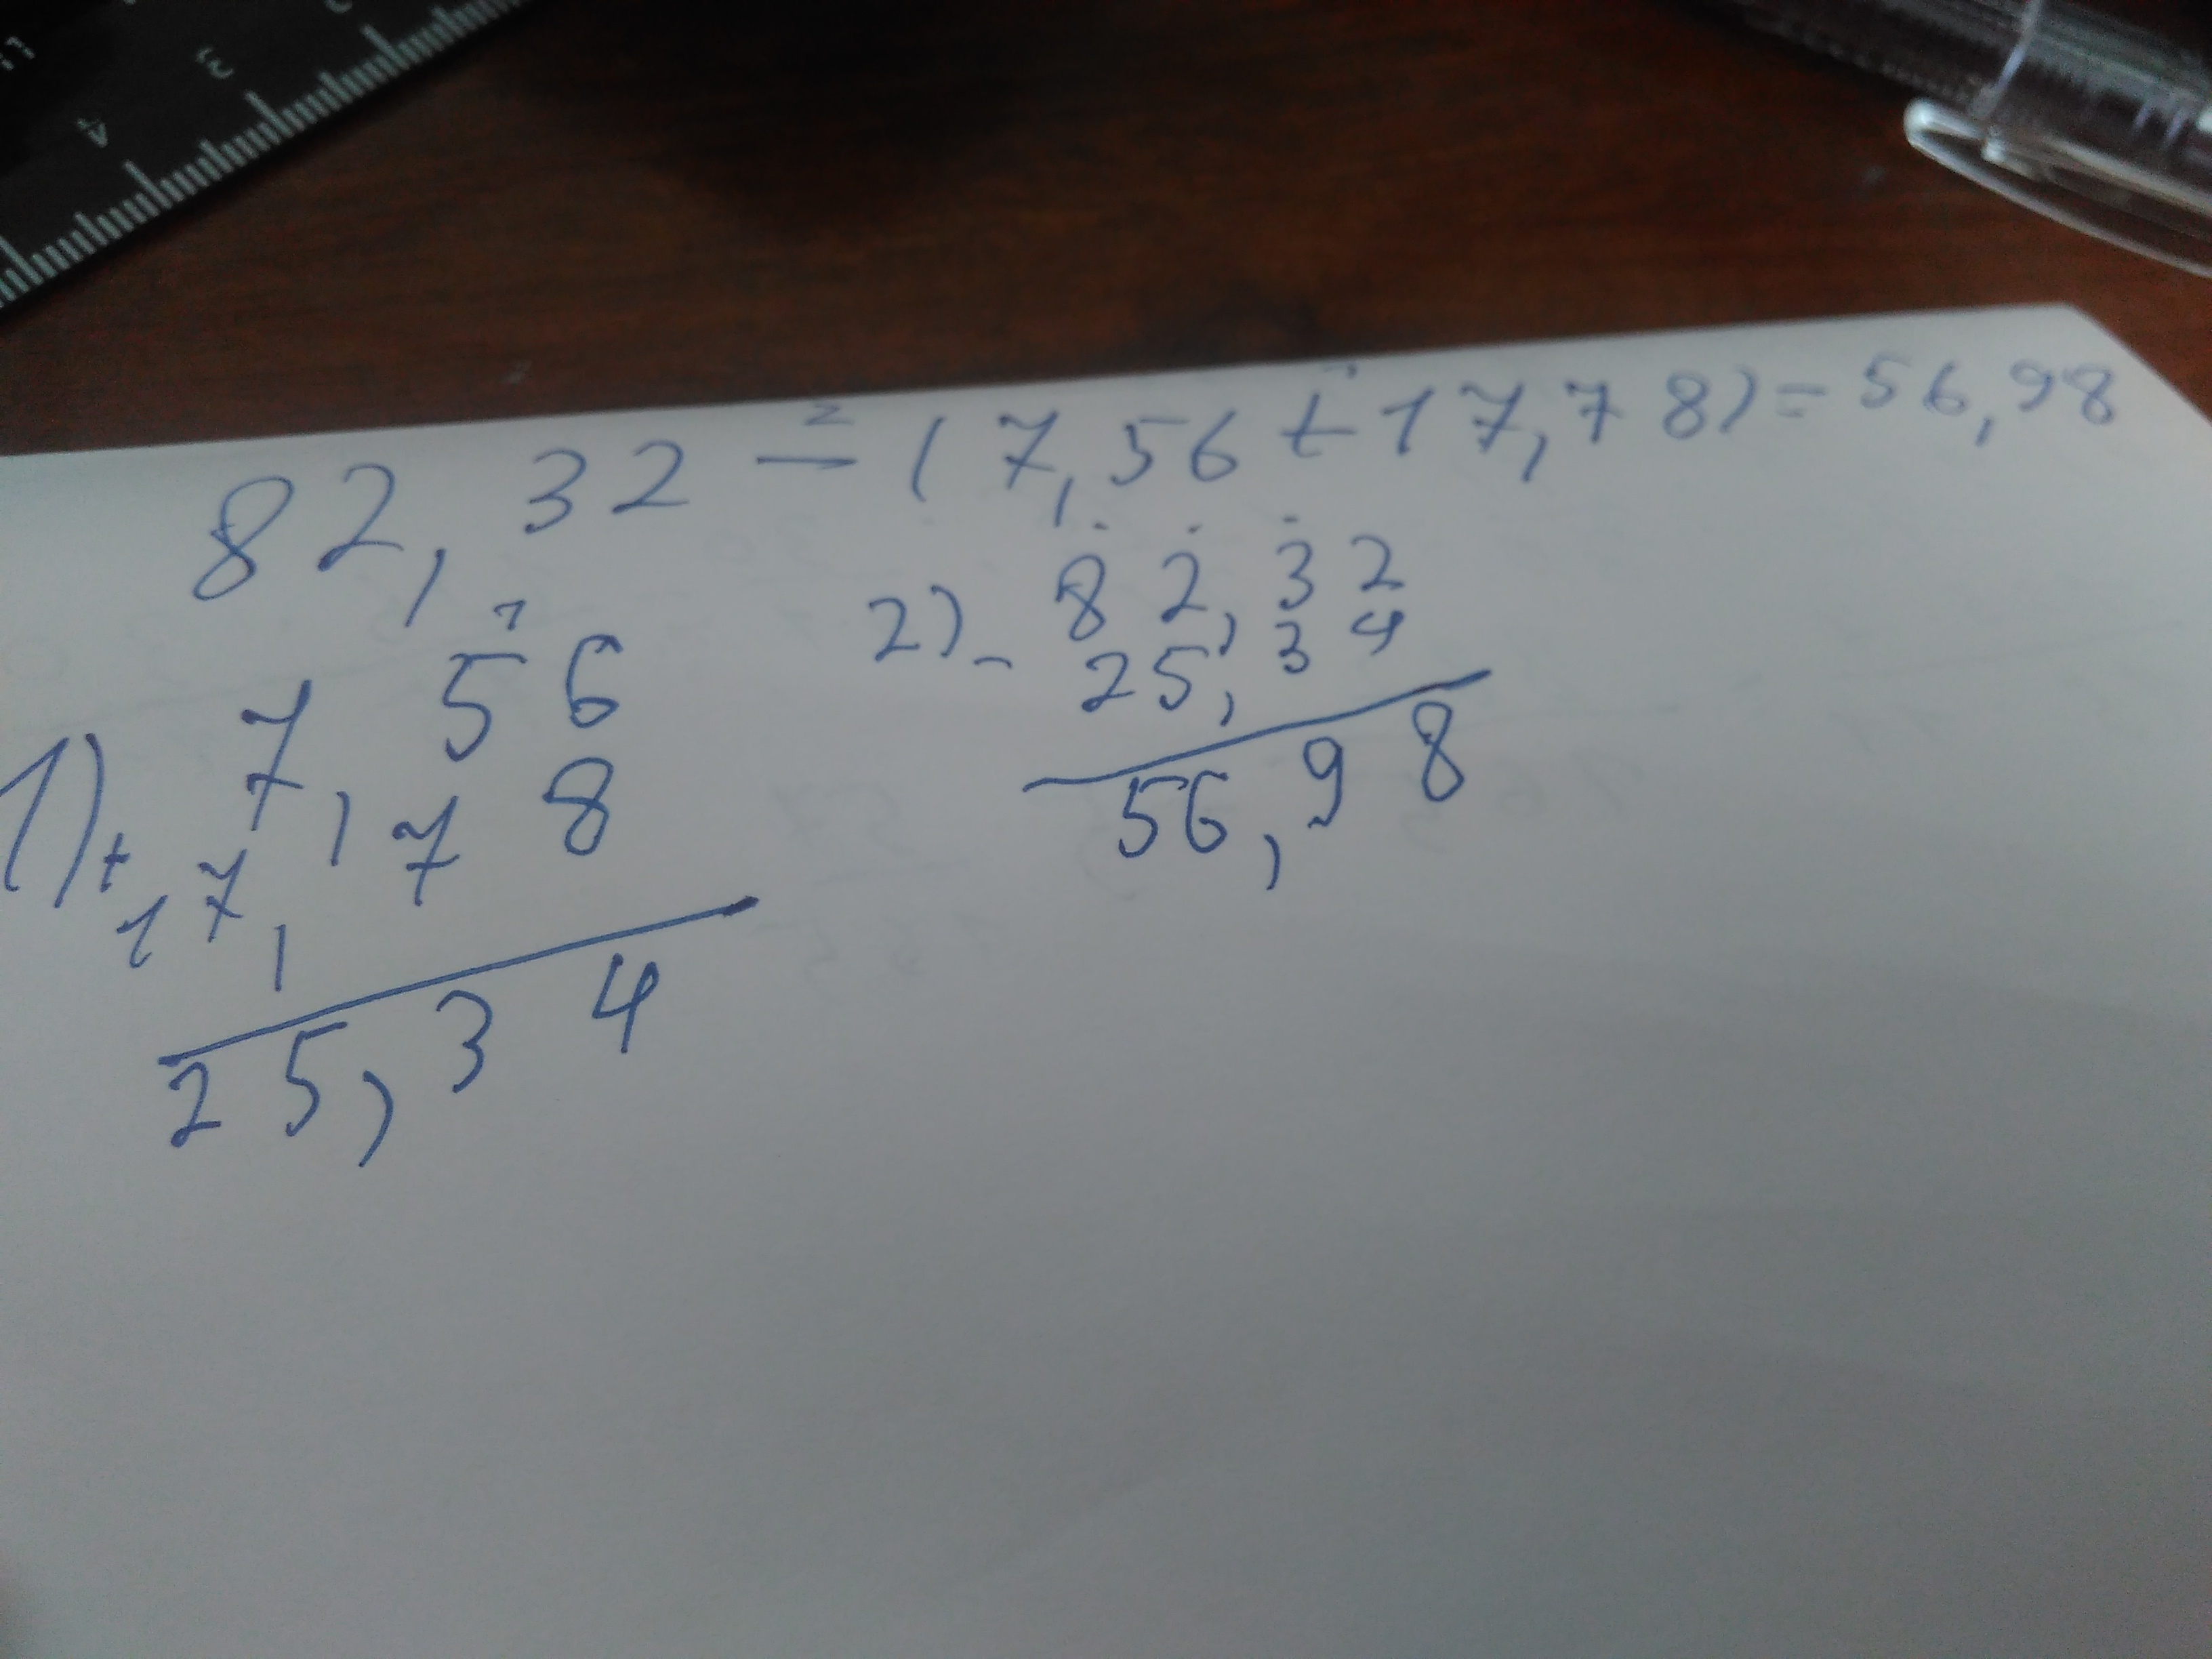 82,32 - (7,56 + 17,78) = 56,98
1) + 7,56
17,78
25,34
2) - 82,32
25,34
56,98